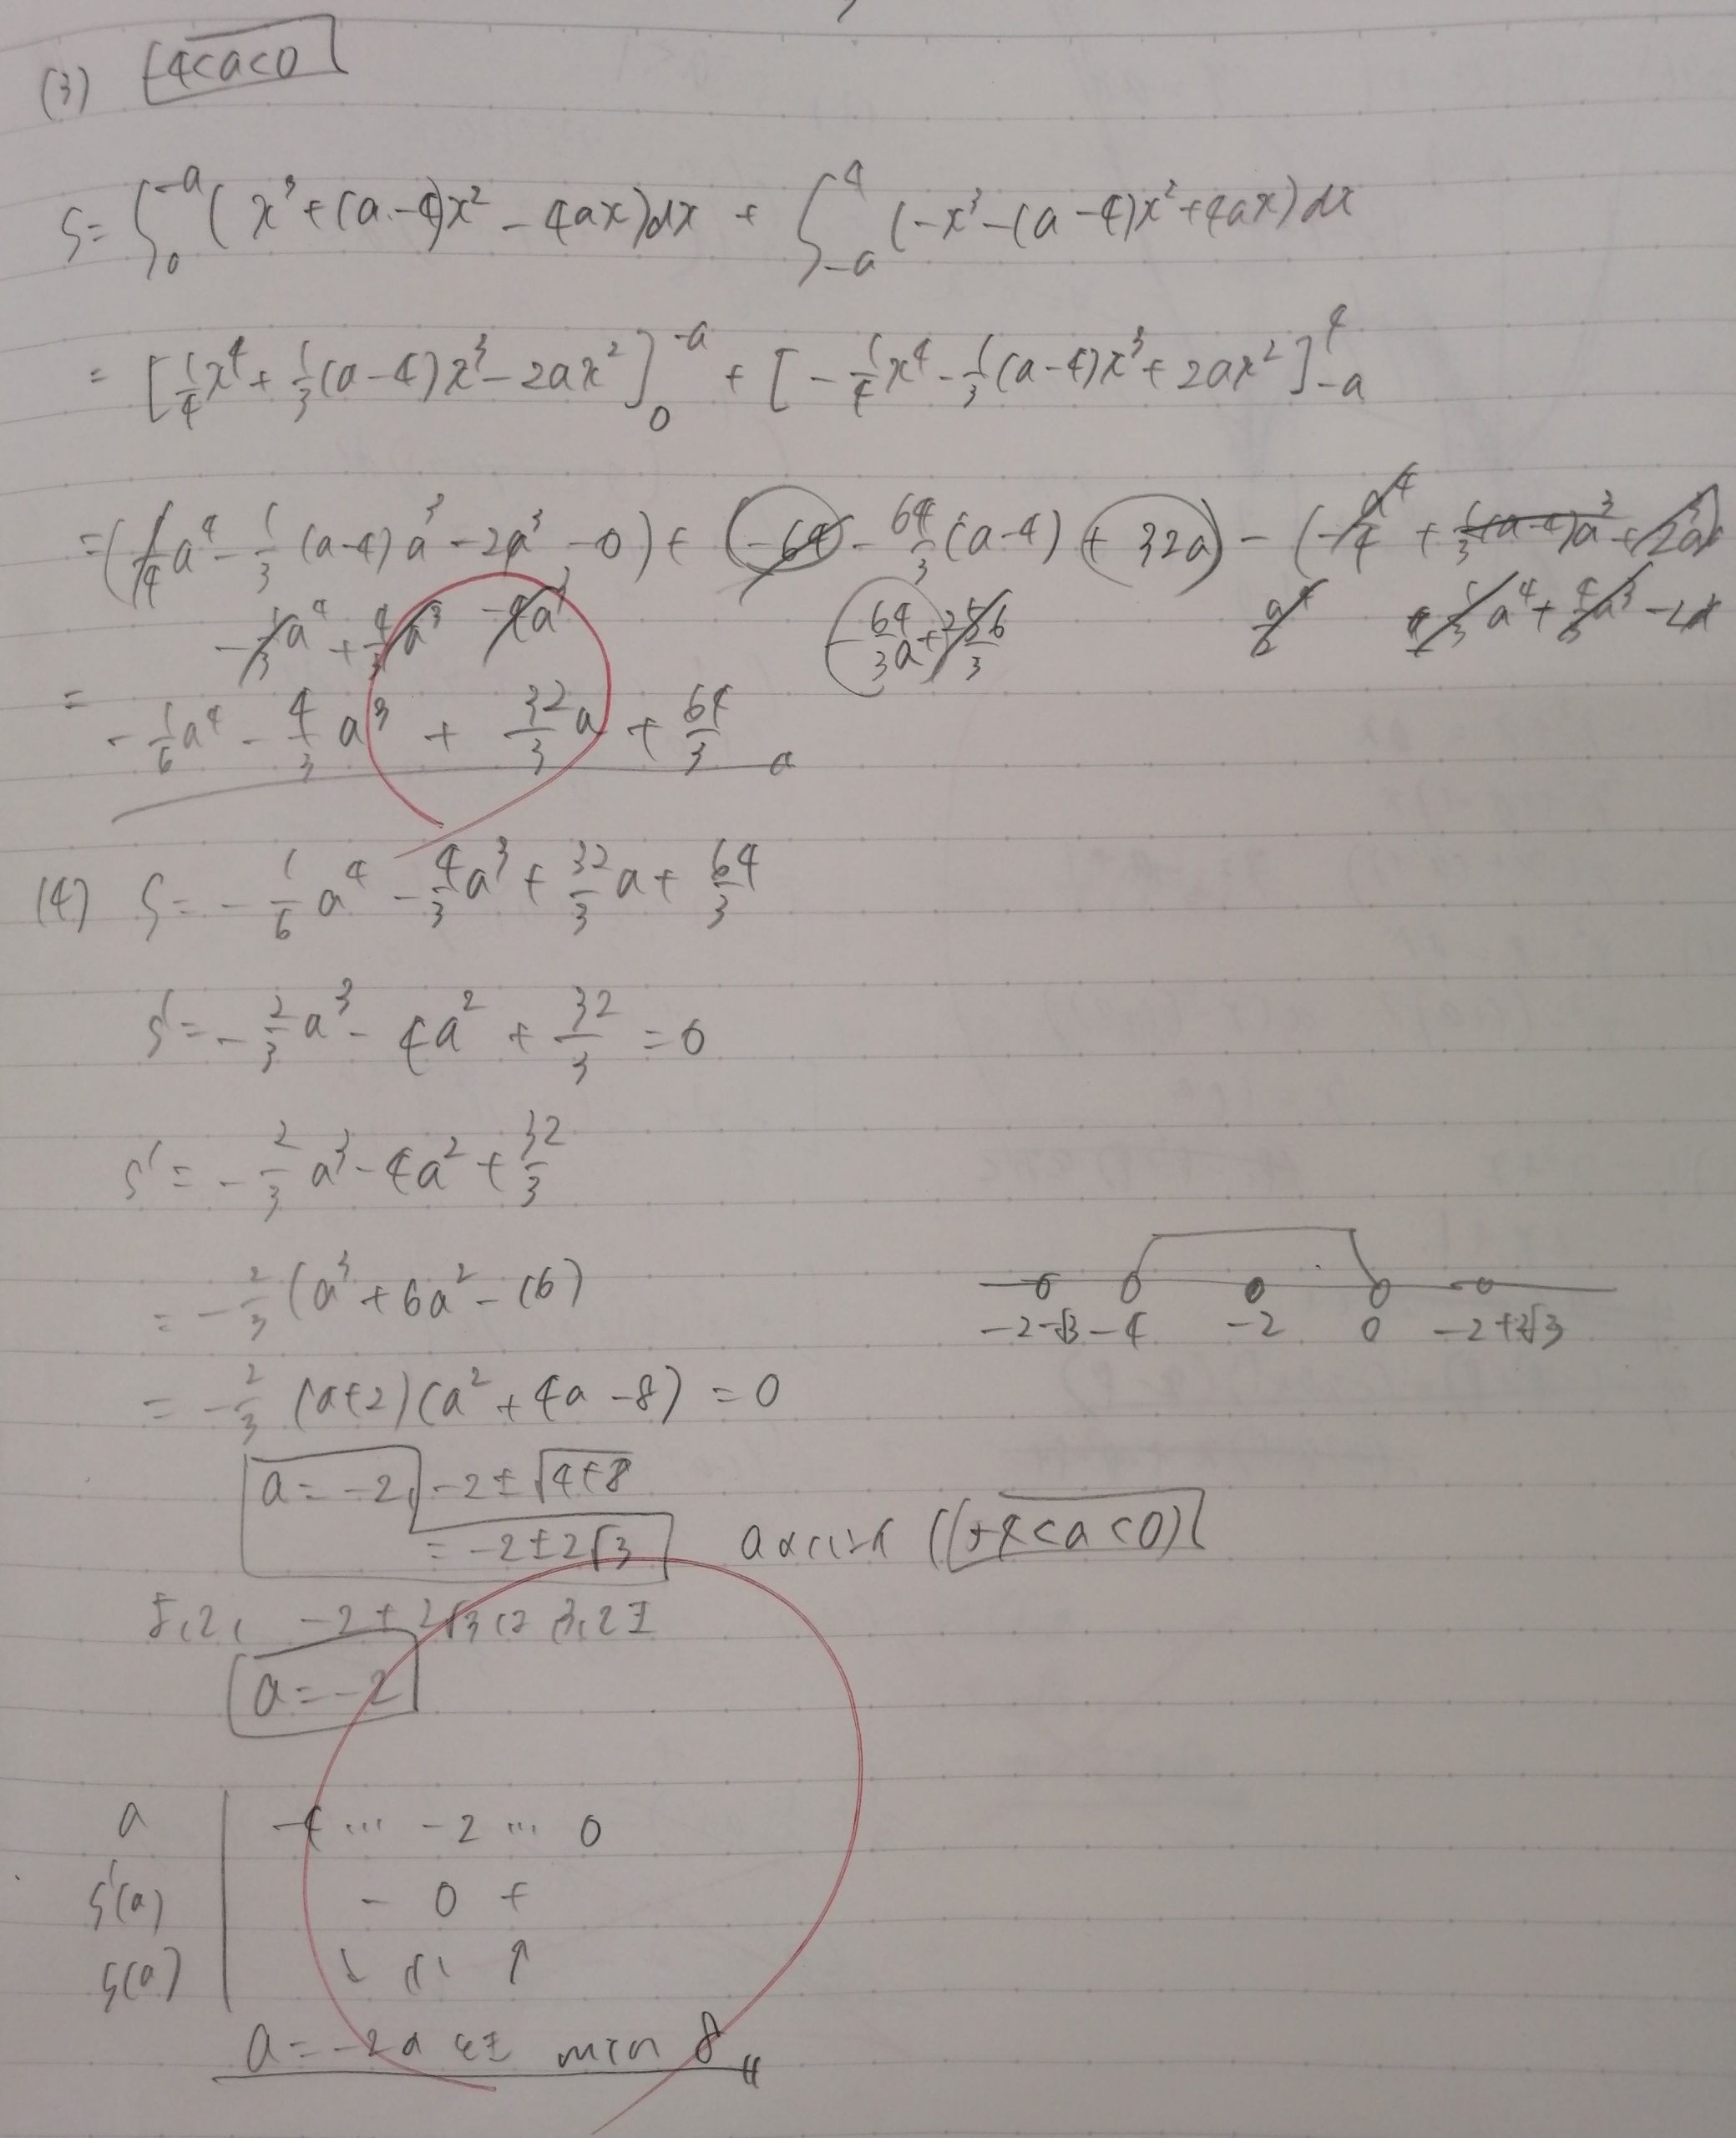 (3) -4<a<0
S= ∫₀^{-a} (x³+(a-4)x²-4ax)dx + ∫_{-a}^{4} (-x³-(a-4)x²+4ax)dx
= [1/4 x⁴+1/3(a-4)x³-2ax²]₀^{-a} + [-1/4 x⁴-1/3(a-4)x³+2ax²]_{-a}^{4}
=(1/4 a⁴-1/3(a-4)a³-2a³-0)+(-64-64/3(a-4)+32a)-(-a⁴/4+1/3(a-4)a³+2a³)
-1/3 a⁴+4/3 a³ -4a³ -64/3 a+256/3 a⁴/2
= -1/6 a⁴-4/3 a³+32/3 a+64/3
(4) S=-1/6 a⁴-4/3 a³+32/3 a+64/3
S'=-2/3 a³-4a²+32/3=0
S'=-2/3 a³-4a²+32/3
=-2/3(a³+6a²-16)
=-2/3(a+2)(a²+4a-8)=0
-2-√3 -4 -2 0 -2+2√3
a=-2, -2±√4+8
=-2±2√3
(-4<a<0)
よって、-2±2√3は
a=-2
a -4 … -2 … 0
S'(a) - 0 +
S(a) ↓ ↑
a=-2のとき min 8